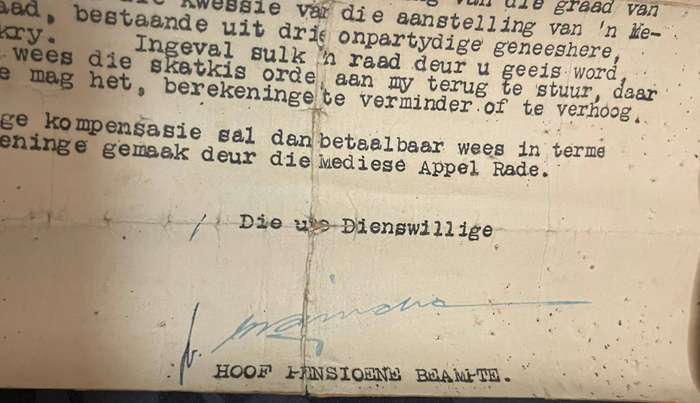 die kwessie van die aanstelling van 'n Me-
aad, bestaande uit drie onpartydige geneeshere,
kry. Ingeval sulk 'n raad deur u geeis word,
wees die skatkis orde aan my terug te stuur, daar
e mag het, berekeninge te verminder of te verhoog.
ge kompensasie sal dan betaalbaar wees in terme
eninge gemaak deur die Mediese Appel Rade.
Die uwe Dienswillige
HOOF PENSIOENE BEAMPTE.